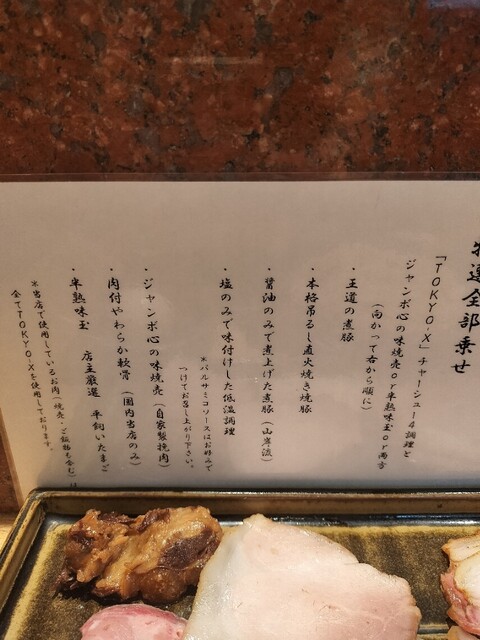 特選全部乗せ
「TOKYO-X」チャーシュー4調理と
ジャンボ心の味焼売or半熟味玉or両方
(向かって右から順に)
・王道の煮豚
・本格吊るし直火焼き焼豚
・醤油のみで煮上げた煮豚(山岸流)
・塩のみで味付けした低温調理
*バルサミコソースはお好みで
つけてお召し上がり下さい。
・ジャンボ心の味焼売(自家製挽肉)
・肉付やわらか軟骨(国内当店のみ)
・半熟味玉 店主厳選 平飼いたまご
*当店で使用しているお肉(焼売・ご飯物も含む)は
全てTOKYO-Xを使用しております。